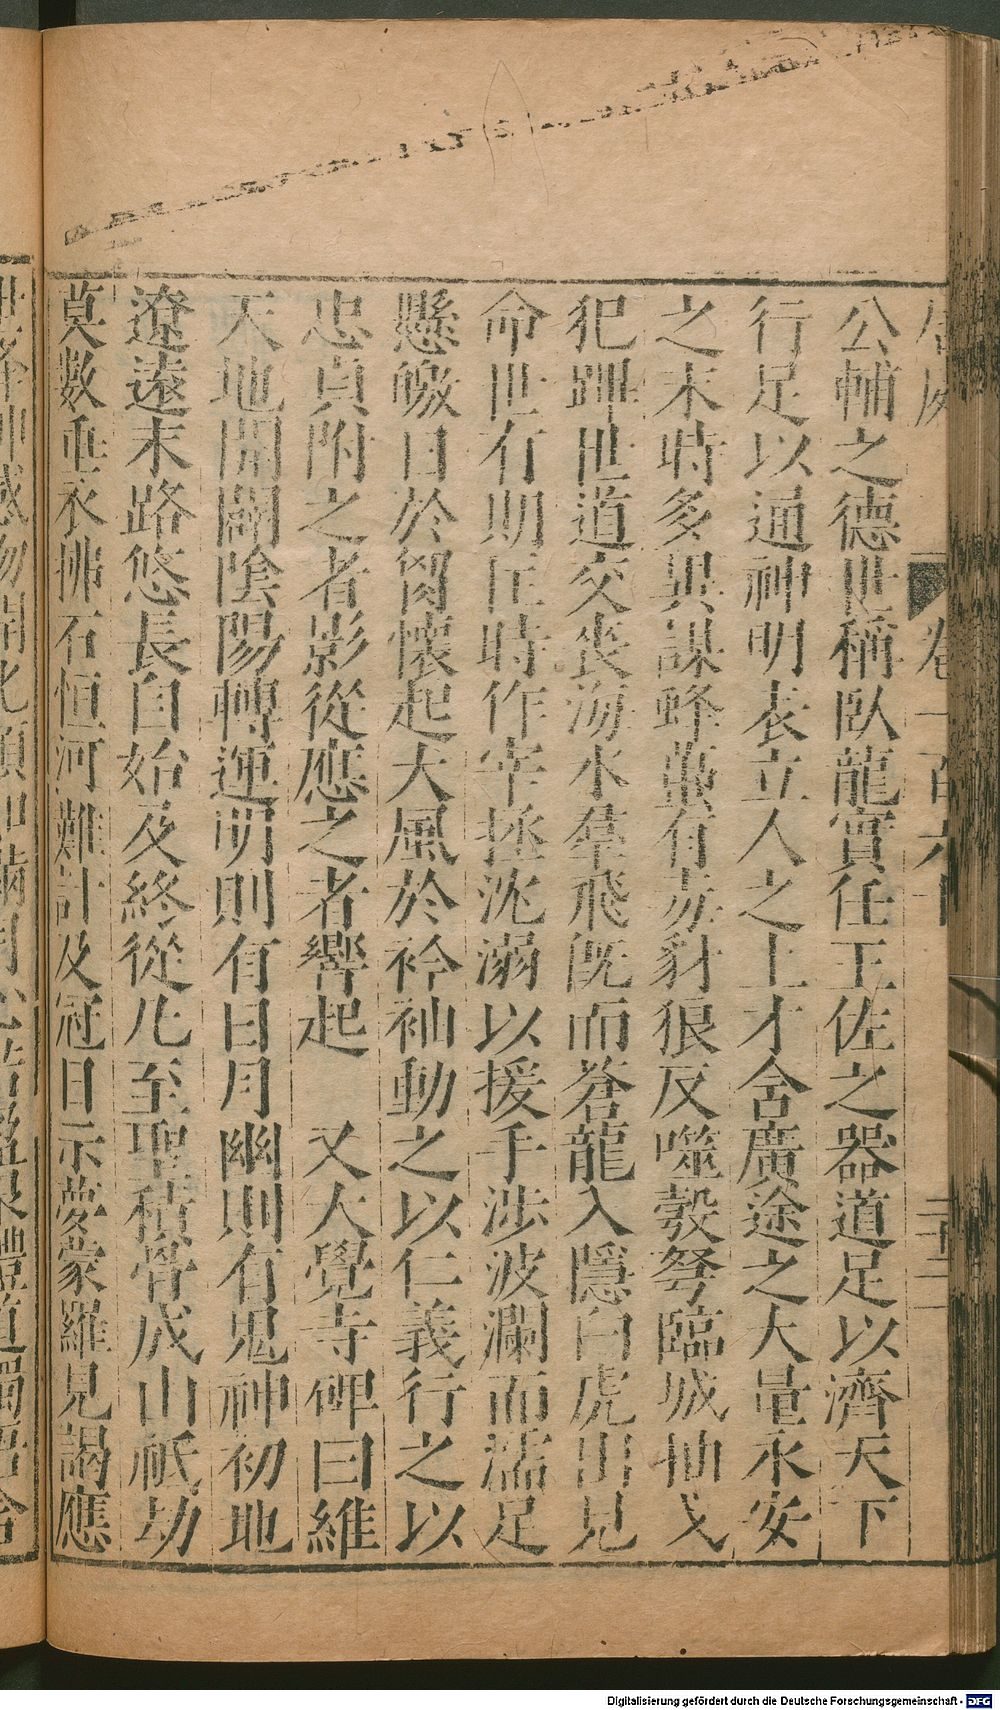 卷一百六十
公輔之德世稱臥龍實任王佐之器道足以濟天下
行足以通神明表立人之上才含廣途之大量永安
之末時多異謀蜂蠆有毒豺狼反噬彀弩臨城抽戈
犯蹕世道交喪海水羣飛旣而蒼龍入隱白虎出見
命世有期匡時作宰拯沈溺以援手涉波瀾而濡足
懸皦日於胷懷起大風於衿袖動之以仁義行之以
忠貞附之者影從應之者響起　又大覺寺碑曰維
天地開闢陰陽轉運明則有日月幽則有鬼神初地
遼遠末路悠長自始及終從凡至聖積骨成山祇劫
莫數垂衣拂石恒河難計及冠日示夢蒙羅見謁應
Digitalisierung gefördert durch die Deutsche Forschungsgemeinschaft - DFG